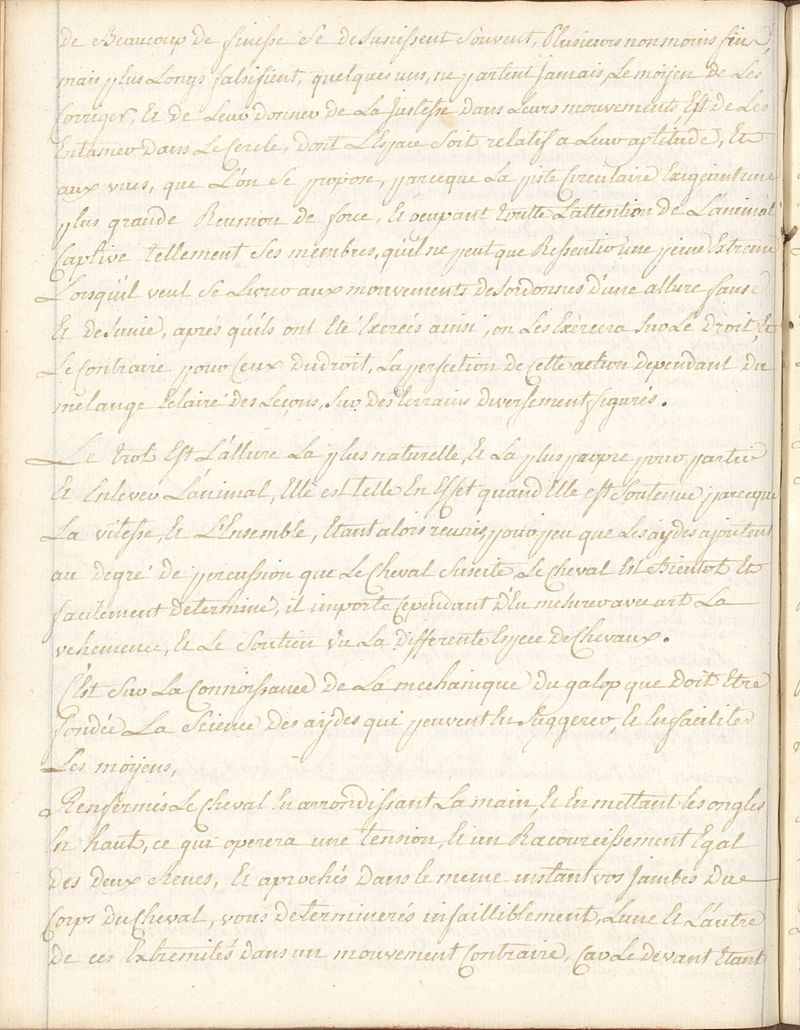 de Beaucoup de finesse se desunissent souvent, Plusieurs non moins fins,
mais plus Longs falsifient, quelques uns, ne partent jamais, Le moyen de Les
Corriger, Et de Leur donner de La justesse dans Leurs mouvements Est de Les
Entamer dans Le Cercle, dont L'Espace soit relatif a Leur aptitude, Et
aux vues, que L'on se propose, parceque La piste Circulaire Exigeant une
plus grande Reunion de force, Et ocupant toutte L'attention de L'animal
Captive tellement ses membres, qu'il ne peut que Ressentir une peine Extreme
Lorsqu'il veut se Livrer aux mouvements desordonnes d'une allure fausse
Et desunie, aprés qu'ils ont Eté Exercés ainsi, on Les Exercera sur Le droit, Et
Le Contraire pour Ceux du droit, La perfection de Cette action dependant du
melange Eclairé des Leçons, sur des terrains diversement figurés.
Le trot Est L'allure La plus naturelle, Et La plus propre pour partir
Et Enlever L'animal, Elle est telle En Effet quand Elle est soutenue parceque
La vitesse, Et L'Ensemble, Etant alors reunis, pour peu que Les aydes ajoutent
au degré de percussion que Le Cheval suscite, Le Cheval Est Bientot Et
facilement determiné, il importe Cependant d'En mesurer avec art La
vehemence, Et Le soutien vu La differente Espece de Chevaux.
C'Est sur La Connoissance de La mechanique du galop que doit Etre
fondée La science des aydes qui peuvent En suggerer, Et En faciliter
Les moÿens,
Renfermés Le Cheval En arrondissant La main, Et En mettant les ongles
En haut, ce qui operera une tension, Et un Racourcissement Egal
des deux Renes, Et aprochés dans le meme instant vos jambes du
Corps du Cheval, vous determinerés infailliblement, L'une Et L'autre
de ces Extremités dans un mouvement Contraire, Car Le devant Etant